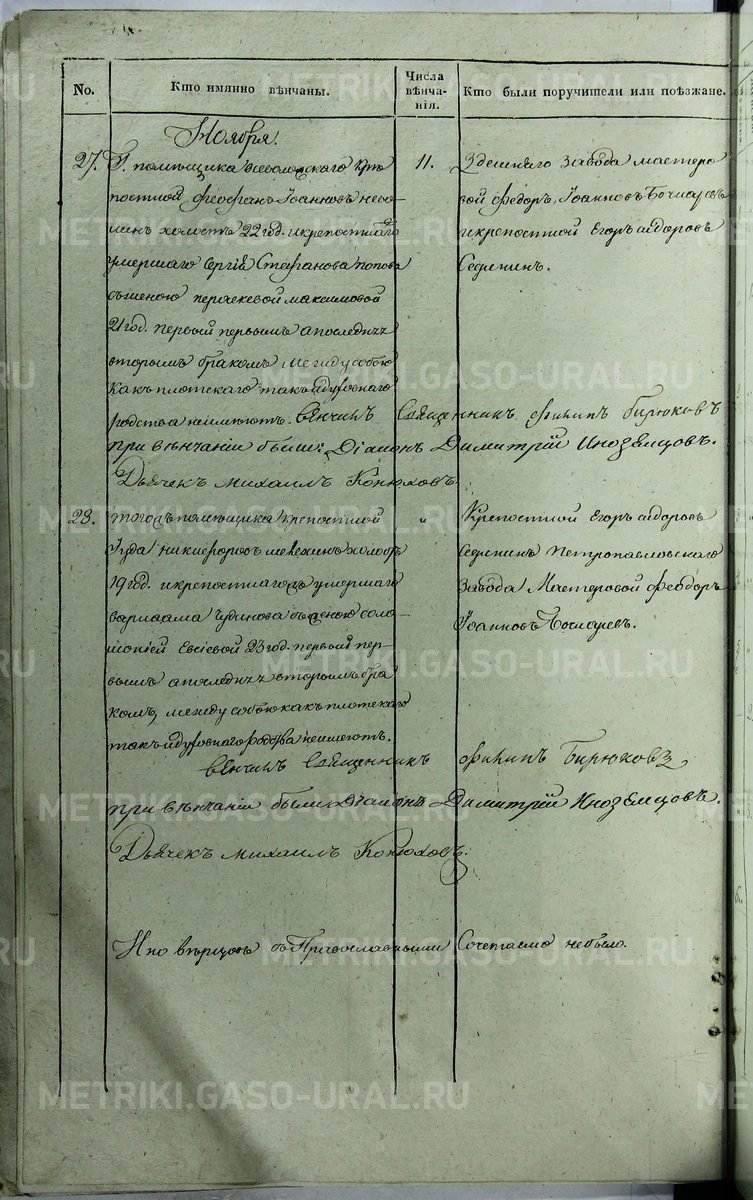 No.
Кто имянно вѣнчаны.
Числа вѣнча-нія.
Кто были поручители или поѣзжане.
Ноября.
27. Г. помѣщика Всеволожскаго крѣ
постной Феофанъ Іоанновъ
холостъ 22 год. и крепостнаго
умершаго Сергій Стефанова Попова
съ женою Максимовой
21 год. первый первымъ а последняя
вторымъ бракомъ между собою
какъ плотскаго такъ и духовнаго
родства неимеютъ. Венчилъ Священникъ Филипъ Бирюковъ
при венчаніи были: Діаконъ Димитрій Иноземцовъ.
Дьячекъ Михаилъ Конюховъ.
11.
Здешняго завода мастеро
вой Федоръ Іоанновъ Бочкаревъ
и крепостной Егоръ Сидоровъ
28. тогожъ помѣщика крепостной
Іуда Никифоровъ холостъ
19 год. и крепостнаго умершаго
Варлаама Чудинова съ женою Соло
моніей Евсіевой 23 год. первый пер-
вымъ а последняя вторымъ бра
комъ, между собою какъ плотскаго
такъ и духовнаго родства неимеютъ.
Венчилъ Священникъ Филипъ Бирюковъ
при венчаніи были Діаконъ Димитрій Иноземцовъ.
Дьячекъ Михаилъ Конюховъ.
"
Крепостной Егоръ Сидоровъ
Петропавловскаго
завода Мастеровой Феодоръ
Іоанновъ Бочкаревъ.
Иноверцовъ съ Православными Сочетаемо небыло.
METRIKI.GASO-URAL.RU